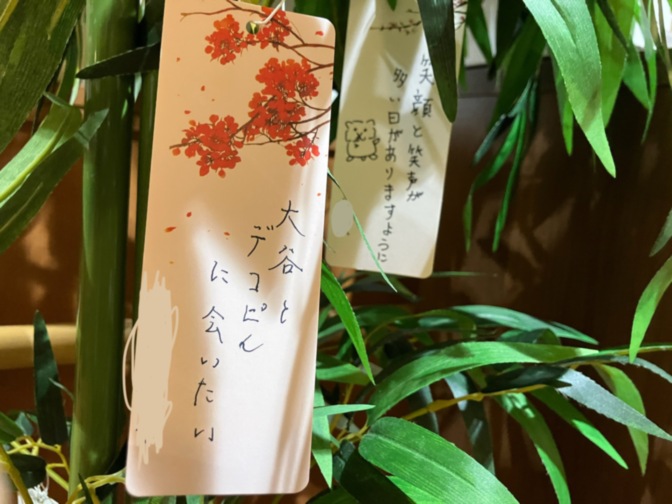 大谷と
デコピん
に会いたい
笑顔と笑声が
多い日がありますように